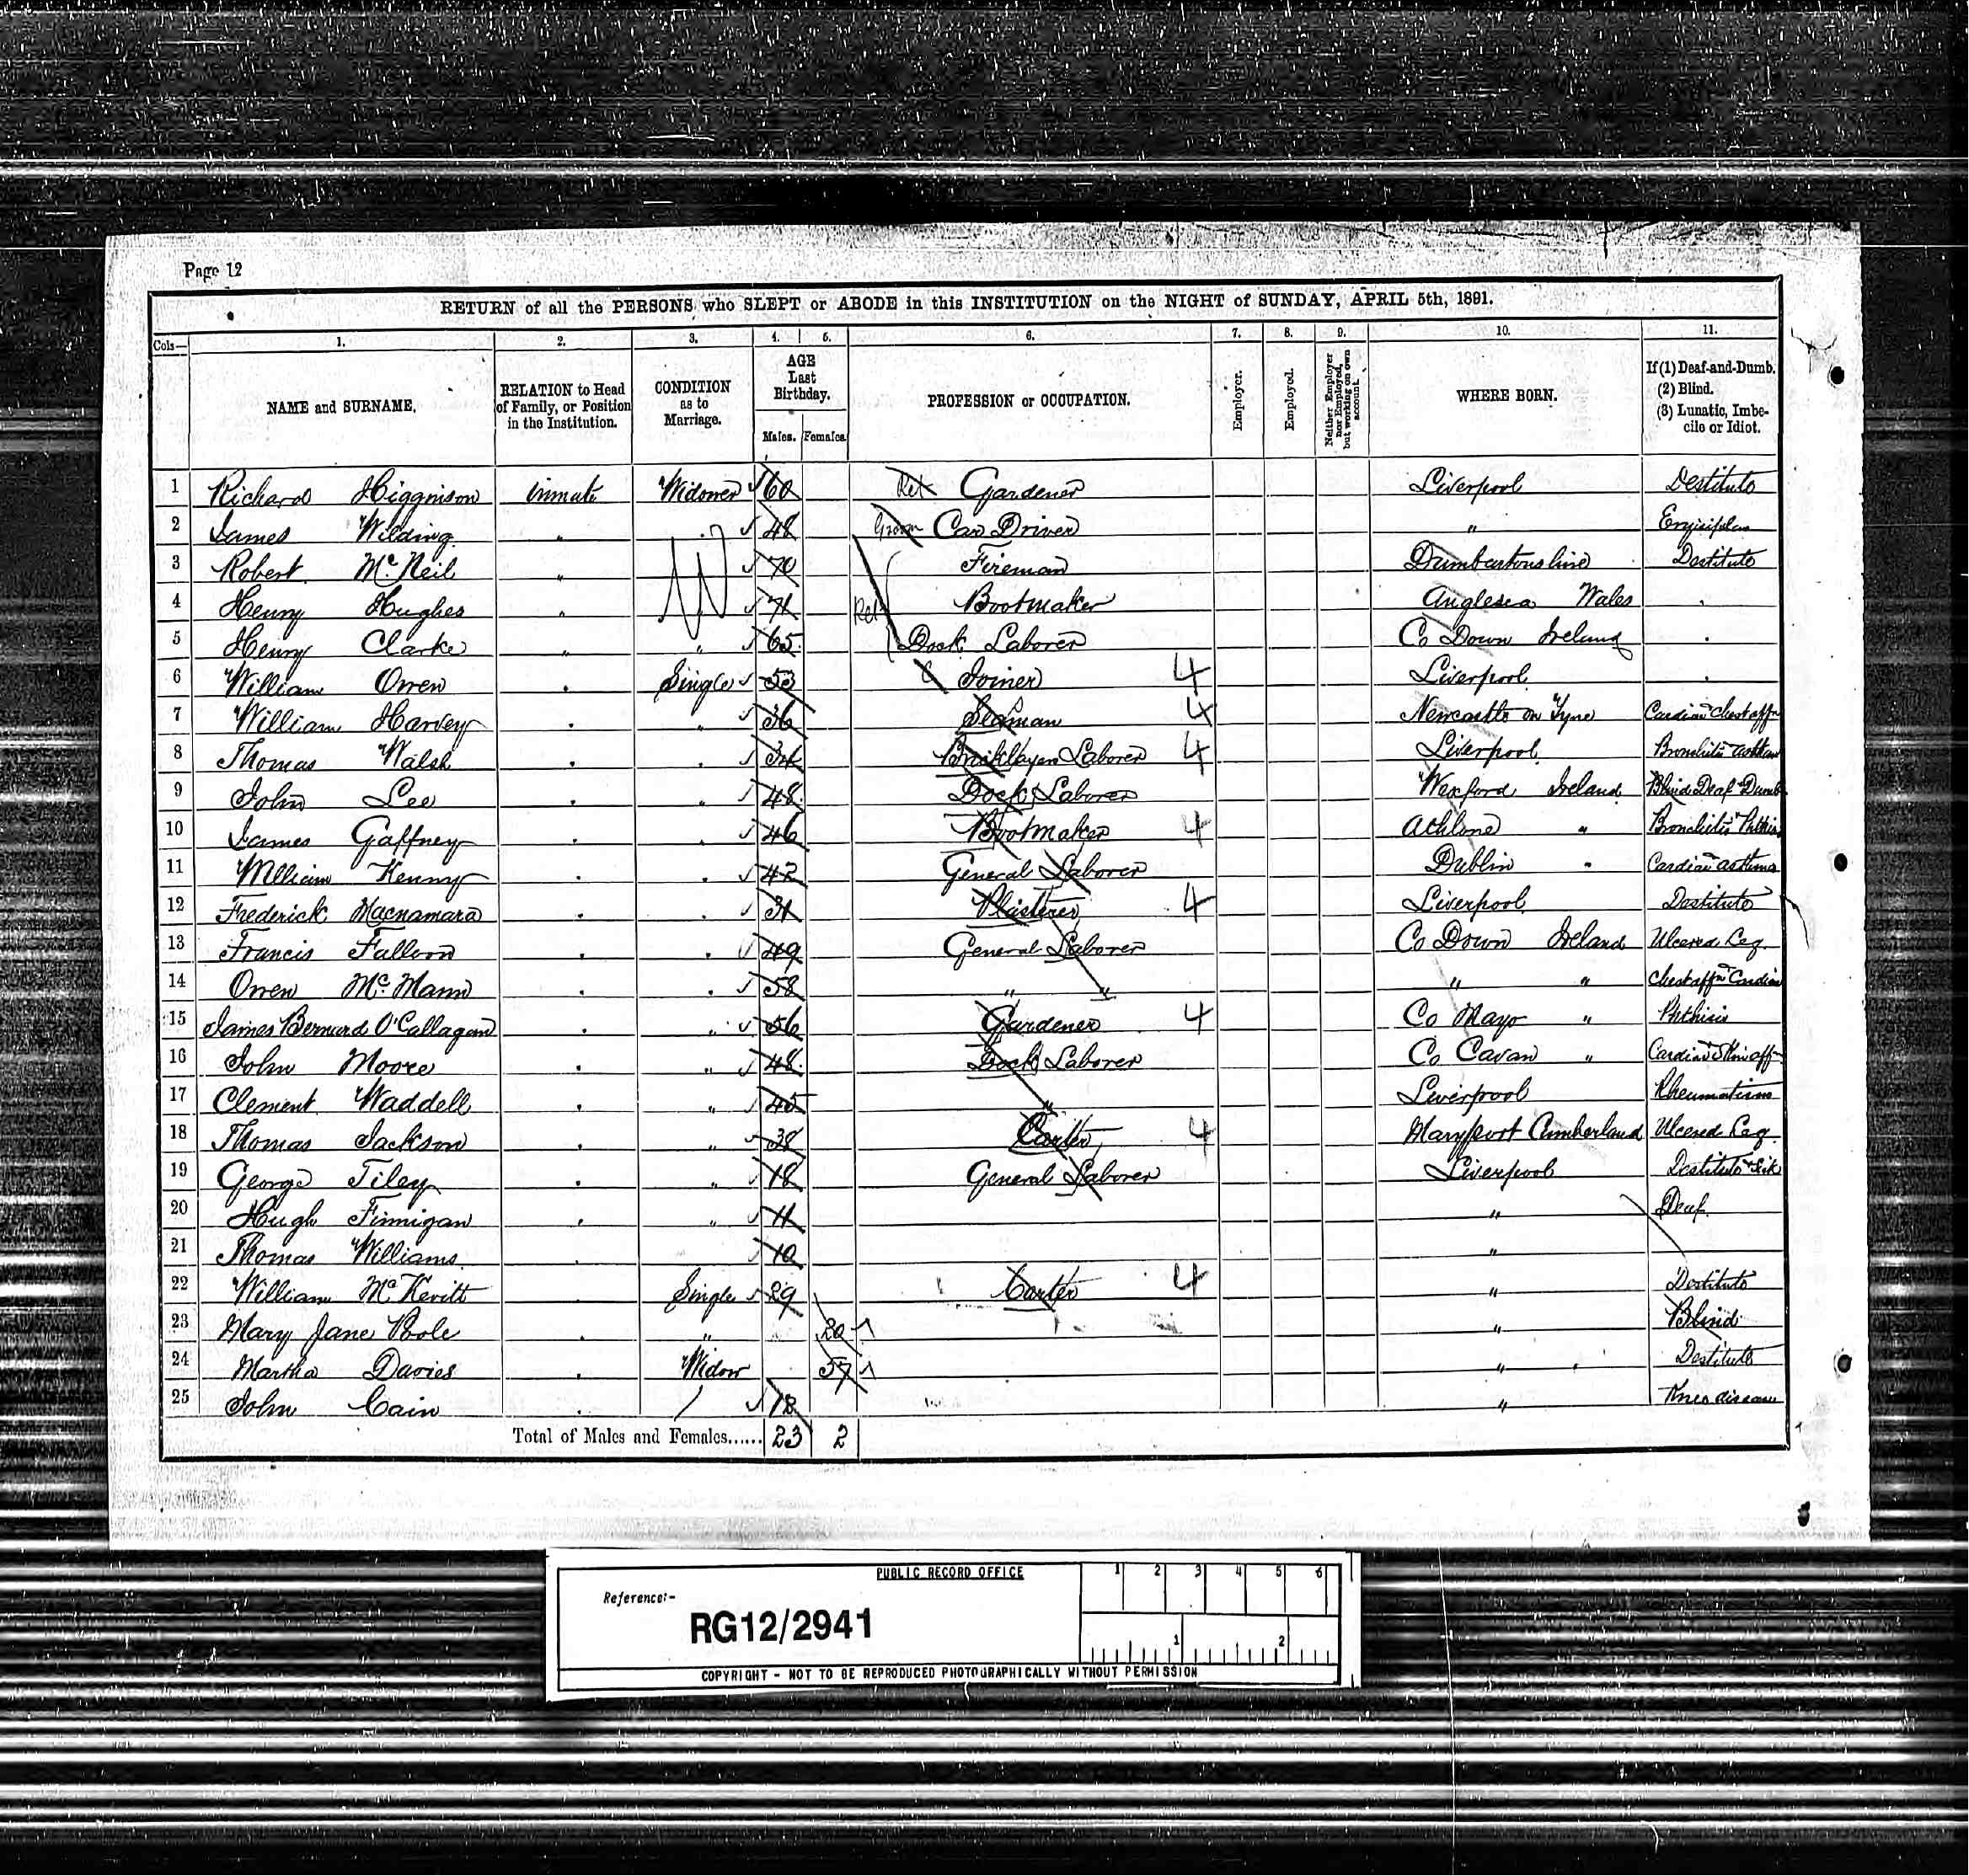 Page 12
RETURN of all the PERSONS who SLEPT or ABODE in this INSTITUTION on the NIGHT of SUNDAY, APRIL 5th, 1891.
Cols— 1. 2. 3. 4. 5. 6. 7. 8. 9. 10. 11.
NAME and SURNAME. RELATION to Head of Family, or Position in the Institution. CONDITION as to Marriage. AGE Last Birthday. Males. Females. PROFESSION or OCCUPATION. Employer. Employed. Neither Employer nor Employed, but working on own account. WHERE BORN. If (1) Deaf-and-Dumb. (2) Blind. (3) Lunatic, Imbecile or Idiot.
1 Richard Higginson Inmate Widower 60 Ret Gardener Liverpool Destitute
2 James Wilding " " 48 Groom Car Driver " Erysiplas
3 Robert McNeil " W 70 Fireman Dumbartonshire Destitute
4 Henry Hughes " " 71 Ret Bootmaker Anglesea Wales "
5 Henry Clarke " " 65 Dock Laborer Co Down Ireland "
6 William Owen " Single 53 Joiner 4 Liverpool "
7 William Harvey " " 36 Seaman 4 Newcastle on Tyne Cardiac & Chest affn
8 Thomas Walsh " " 34 Bricklayers Laborer 4 Liverpool Bronchitis
9 John Lee " " 48 Dock Laborer Wexford Ireland Blind Deaf & Dumb
10 James Gaffney " " 46 Bootmaker 4 Athlone " Bronchitis Phthisis
11 William Kenny " " 42 General Laborer Dublin " Cardiac & asthma
12 Frederick Macnamara " " 31 Plasterer 4 Liverpool Destitute
13 Francis Falloon " " 49 General Laborer Co Down Ireland Ulcered Leg
14 Owen McMann " " 58 " " " " Chest affn & Cardiac
15 James Bernard O'Callagan " " 56 Gardener 4 Co Mayo " Phthisis
16 John Moore " " 48 Dock Laborer Co Cavan " Cardiac & Skin affn
17 Clement Waddell " " 45 " Liverpool Rheumatism
18 Thomas Jackson " " 38 Carter 4 Maryport Cumberland Ulcered Leg
19 George Tiley " " 18 General Laborer Liverpool Destitute & Sick
20 Hugh Finnigan " " 11 " Deaf
21 Thomas Williams " 10 "
22 William McKevitt " Single 29 Carter 4 " Destitute
23 Mary Jane Poole " " 20 " Blind
24 Martha Davies " Widow 57 " Destitute
25 John Cain " 18 " Knee disease
Total of Males and Females...... 23 2
PUBLIC RECORD OFFICE
1 2 3 4 5 6
Reference:-
RG12/2941
1 2
COPYRIGHT - NOT TO BE REPRODUCED PHOTOGRAPHICALLY WITHOUT PERMISSION